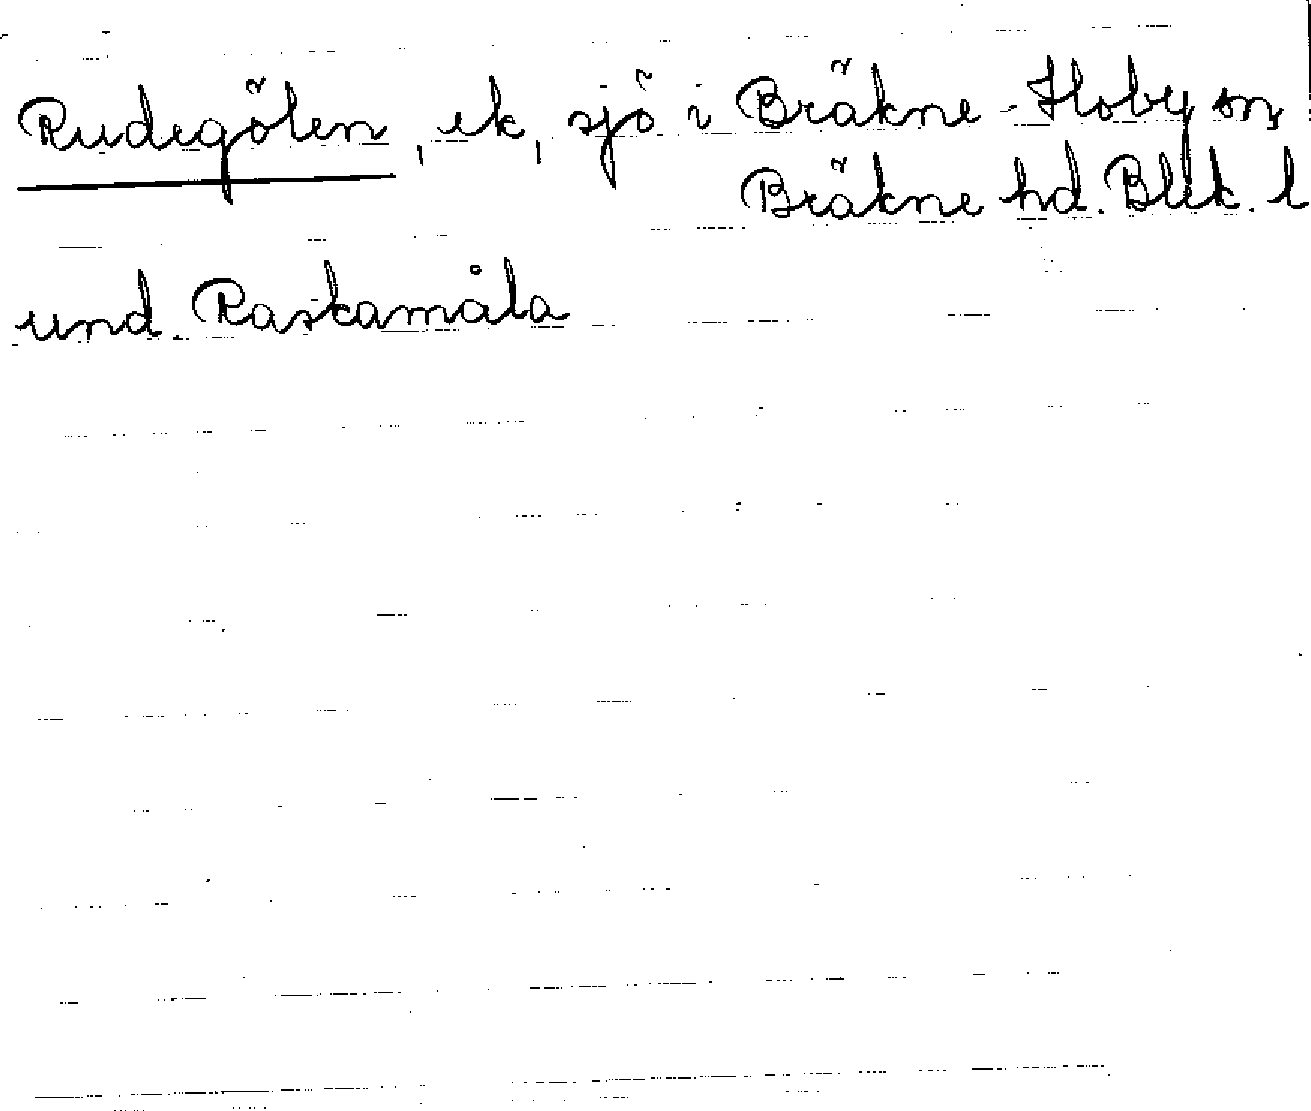 Rudegölen, ek, sjö i Bräkne-Hoby sn,
Bräkne hd. Blek. l
und. Raskamåla